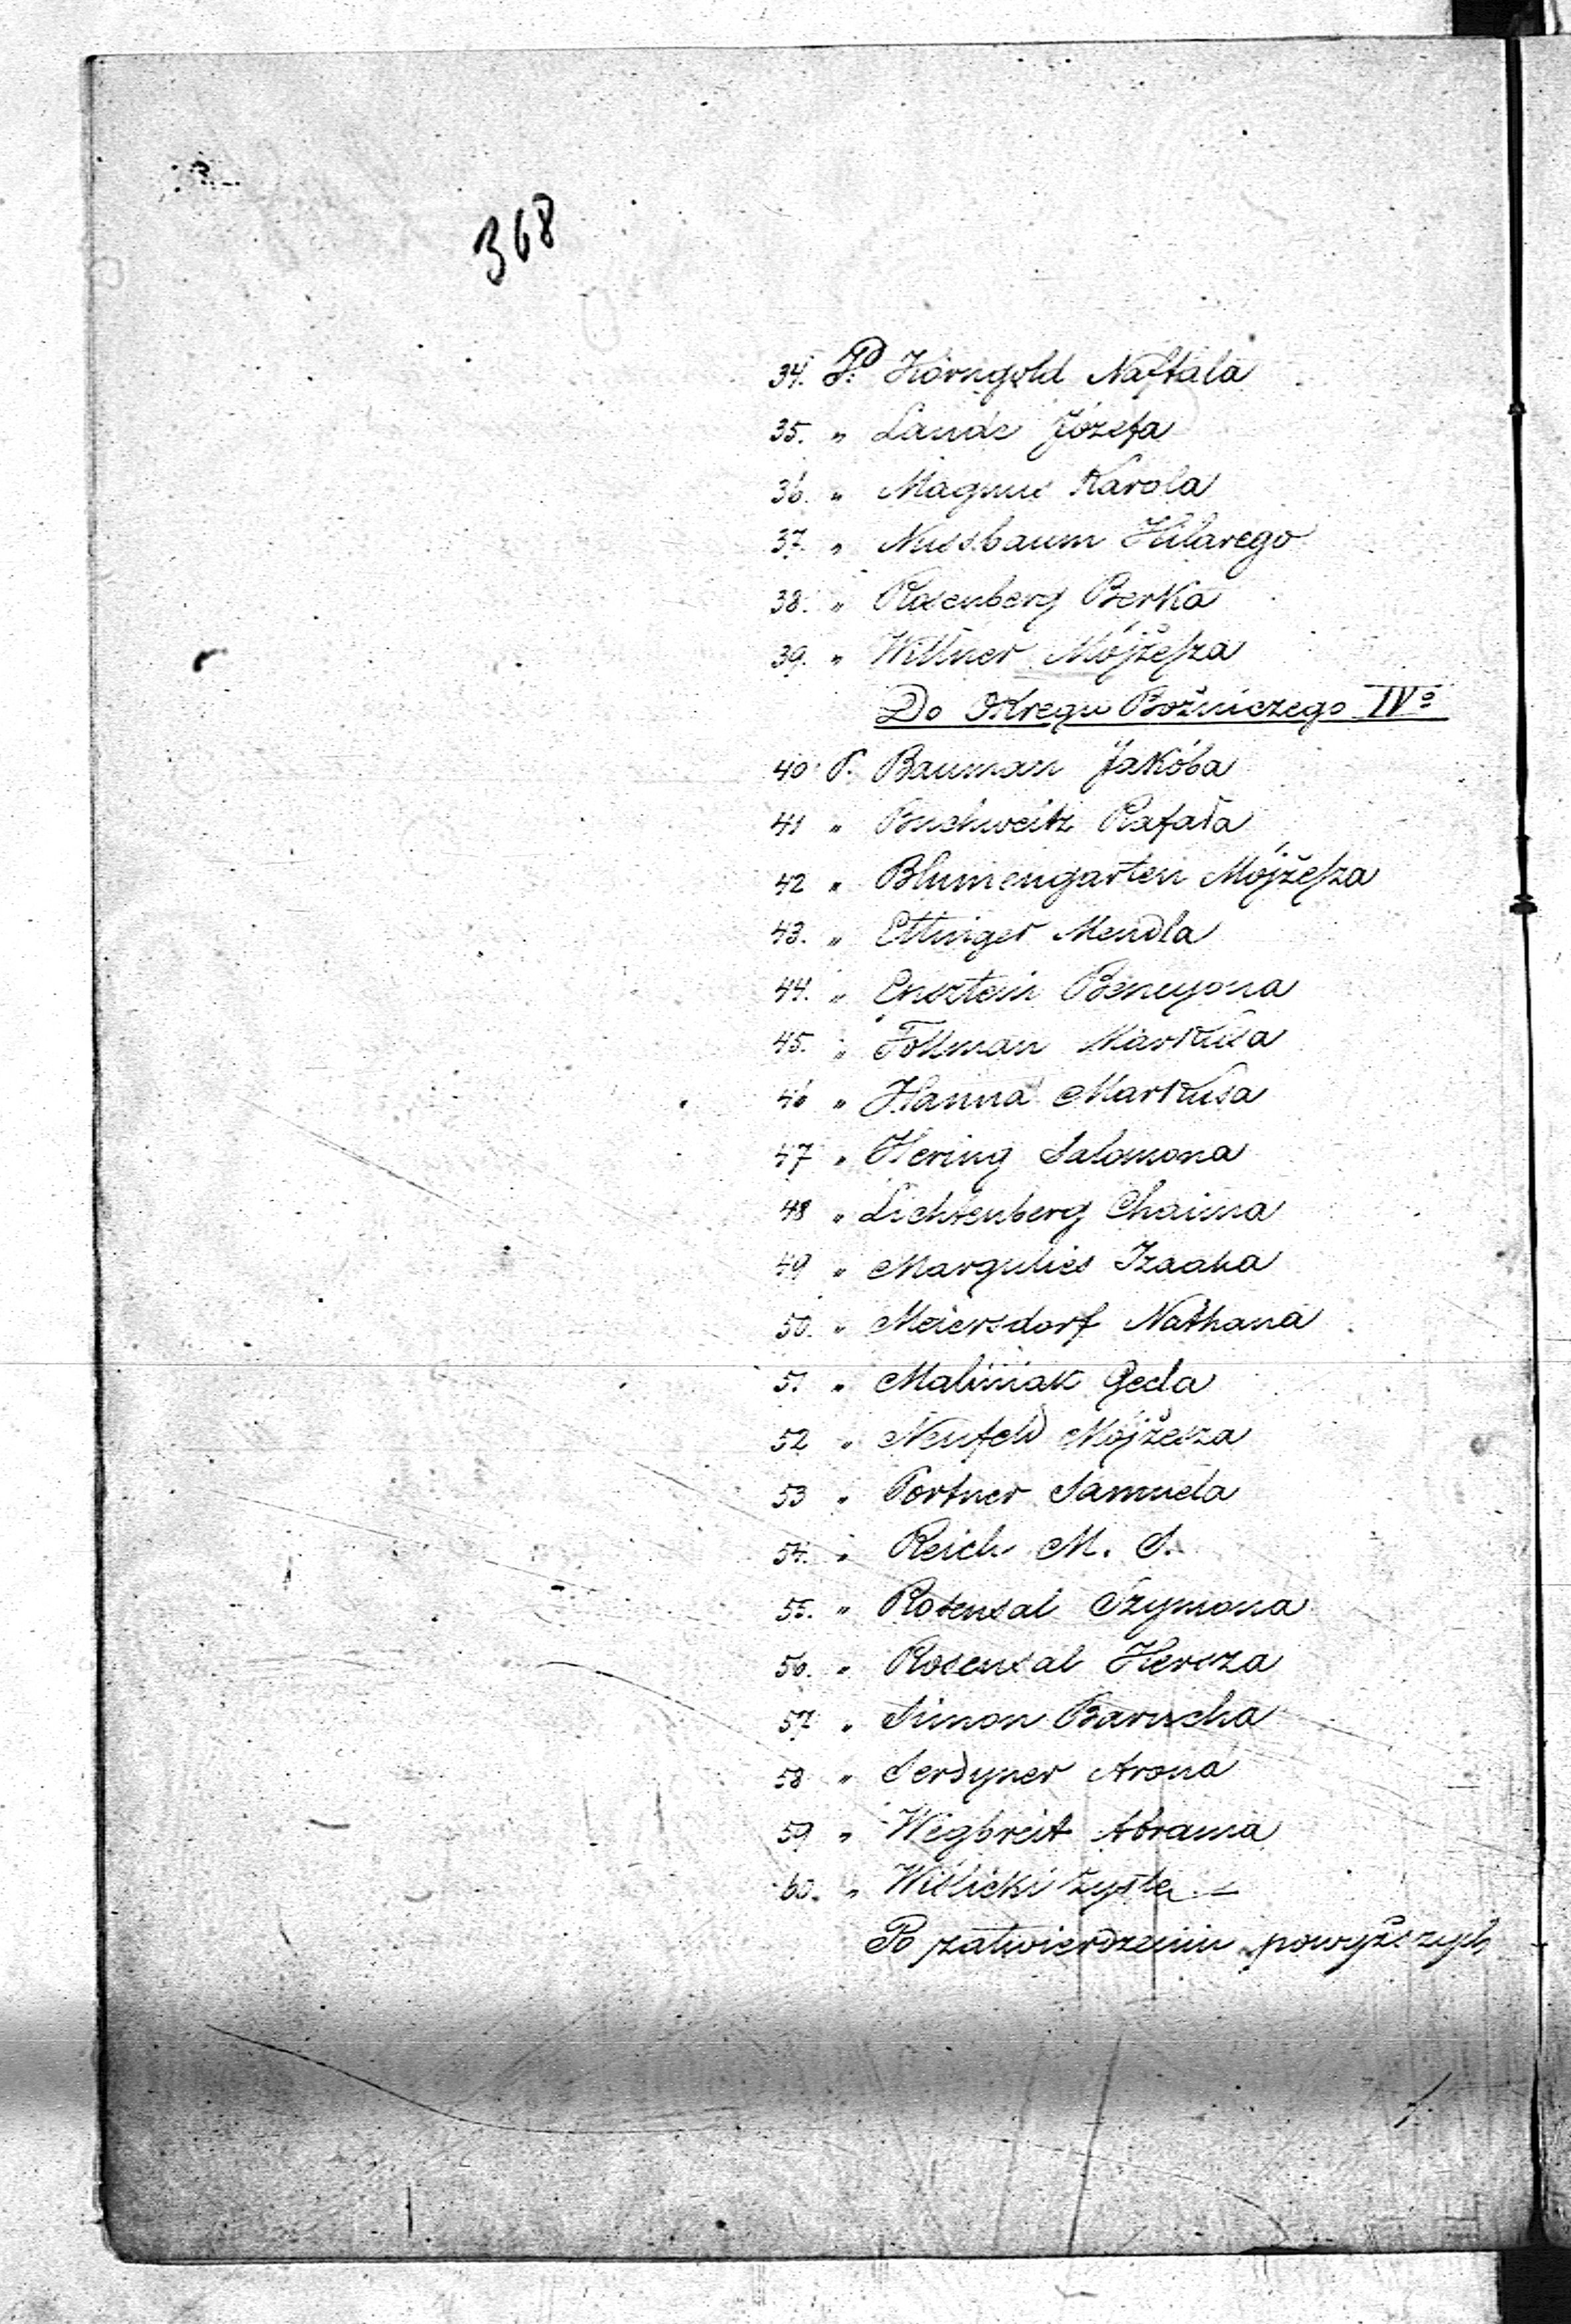 368
34. P. Korngold Naftala
35. " Lande Józefa
36. " Magnus Karola
37. " Nussbaum Hilarego
38. " Rosenberg Berka
39. " Willner Mójżeſza
Do Okręgu Bożniczego IVº
40 P. Bauman Jakóba
41 " Buchweitz Rafała
42 " Blumengarten Mójżeſza
43. " Ettinger Mendla
44. " Epsztein Bencyona
45. " Follman Markusa
46 " Hanna Markusa
47 " Hering Salomona
48 " Lichtenberg Chaima
49 " Margulies Izaaka
50. " Meiersdorf Nathana
51 " Maliniak Geda
52 " Neufeld Mójżesza
53 " Portner Samuela
54. " Reich M. S.
55. " Rosental Szymona
56. " Rosental Hersza
57 " Simon Barucha
58 " Serdyner Arona
59 " Wegbreit Abrama
60. " Wiślicki
Po zatwierdzeniu powyższych